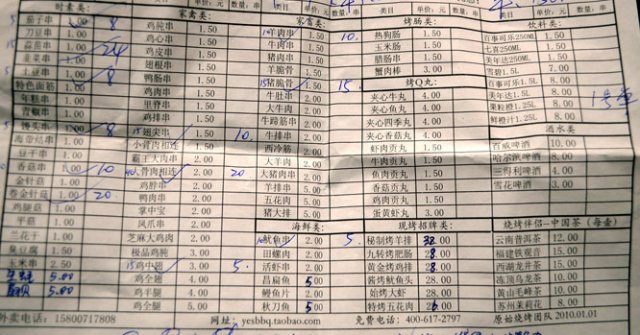 时素类: 家禽类: 家畜类: 烤肠类: 饮料类:
茄子串 1.00 8 鸡肫串 1.50 羊肉串 1.50 10. 热狗肠 1.50 百事可乐250ML
刀豆串 1.00 鸡心串 1.50 牛肉串 玉米肠 1.50 七喜250ML
蒜苗串 1.00 24 鸡皮串 1.50 羊肉串 1.50 腊肠串 1.50 美年达250ML
韭菜串 1.00 翅根串 1.50 羊脆骨 1.50 蟹肉棒 3.00 雪碧1.5L 7.00
土豆串 1.00 8 鸭肠串 1.50 15 猪脆骨 1.50 15. 烤Q丸: 百事可乐1.5L 8.00
特色面筋 1.00 鸡肉串 1.50 牛肚串 2.00 夹心牛丸 4.00 美年达1.5L 8.00
年糕串 1.00 里脊串 1.50 大牛肉 2.00 夹心鱼丸 4.00 果粒橙1.25L 8.00
青椒串 1.00 鸡排串 1.50 牛蹄筋串 2.00 夹心四季丸 4.00 鲜橙汁1.25L 8.00
馒头串 1.00 8 15 翅尖串 1.50 10. 牛排串 2.00 夹心香菇丸 4.00 酒水类
海带结串 1.00 小骨肉相连 1.50 西冷筋 2.00 虾肉贡丸 1.50 百威啤酒 10.00
豆干串 1.00 霸王大肉串 2.00 大羊肉 2.00 牛肉贡丸 1.50 哈尔滨啤酒 7.00
香菇串 1.00 10 大骨肉相连 2.00 20 大猪肉串 2.00 鱼肉贡丸 1.50 三得利啤酒 4.00
金针菇 1.00 鸡胖串 2.00 羊排串 5.00 香菇贡丸 1.50 雪花啤酒 3.00
卷金针菇 1.00 20 鸭肉串 2.00 五花肉 5.00 鸡肉贡丸 1.50
平菇 1.00 掌中宝 2.00 猪大排 5.00 蛋黄虾丸 3.00
兰花干 1.00 凤爪串 2.00 海鲜类: 现烤招牌类: 烧烤伴侣--中国茶(每壶)
臭豆腐 1.50 芝麻大鸡肉 2.00 鱿鱼串 2.00 5. 秘制烤羊排 32.00 云南普洱茶 12.00
玉米串 2.50 极品鸡肫 3.00 田螺肉 2.00 九转烤肥肠 28.00 福建铁观音 15.00
5.00 15 鸡中翅 3.00 5. 活虾串 2.00 黄金烤鸡排 28.00 西湖龙井茶 15.00
5.00 鸡全翅 4.00 昌扁鱼 5.00 酱烤鱿鱼头 10.00 冻顶乌龙茶 15.00
鸡半腿 4.00 鳗鱼片 2.00 始烤大虾 8.00 黄山毛峰茶 10.00
鸡全腿 5.00 秋刀鱼 5.00 特烤五花肉 28.00 苏州茉莉花 8.00
外卖电话: 15800717808 网址: yesbbq.taobao.com 免费电话: 400-617-2797 原始烧烤团队 2010.01.01